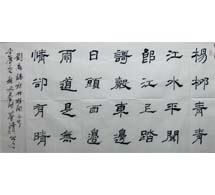 楊柳青青
江水平聞
郎江上踏
謌聲東邊
日出西邊
雨道是無
情卻有晴
劉禹錫竹枝詞